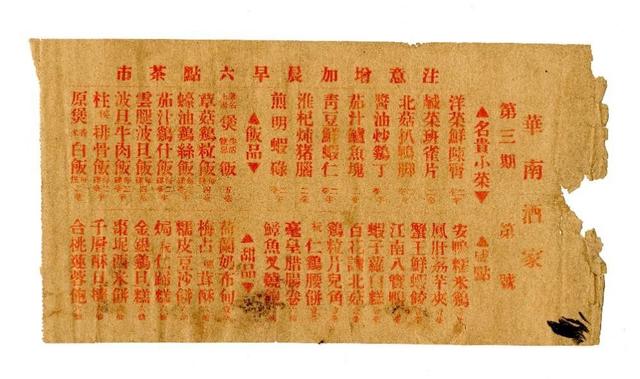 注意增加晨早六點茶市
華南酒家
第三期 第 號
▲名貴小菜▼
洋菜鮮陳腎
鹹菜班雀片
北菇扒鴨脚
醬油炒鷄丁
茄汁鱸魚塊
青豆鮮蝦仁
淮杞炖猪腦
煎明蝦碌
▲飯品▼
煲飯
草菇鷄粒飯
蠔油鷄絲飯
茄汁鷄什飯
雲腿波旦飯
波旦牛肉飯
柱侯排骨飯
原煲白飯
▲咸點
安鴨糯米鷄
鳳肝荔芋夾
蟹王鮮蝦餃
江南八寶
蝦子蘿白糕
百花讓北菇
鷄粒片兒角
仁鷄腰餅
毫皇腊腸卷
魚叉燒飽
▲甜品▼
荷蘭奶布甸
梅占茸酥
糯皮豆沙餅
焗仁蹄糕
金銀鷄旦糕
棗坭西米餅
千層酥旦撻
合桃蓮蓉飽